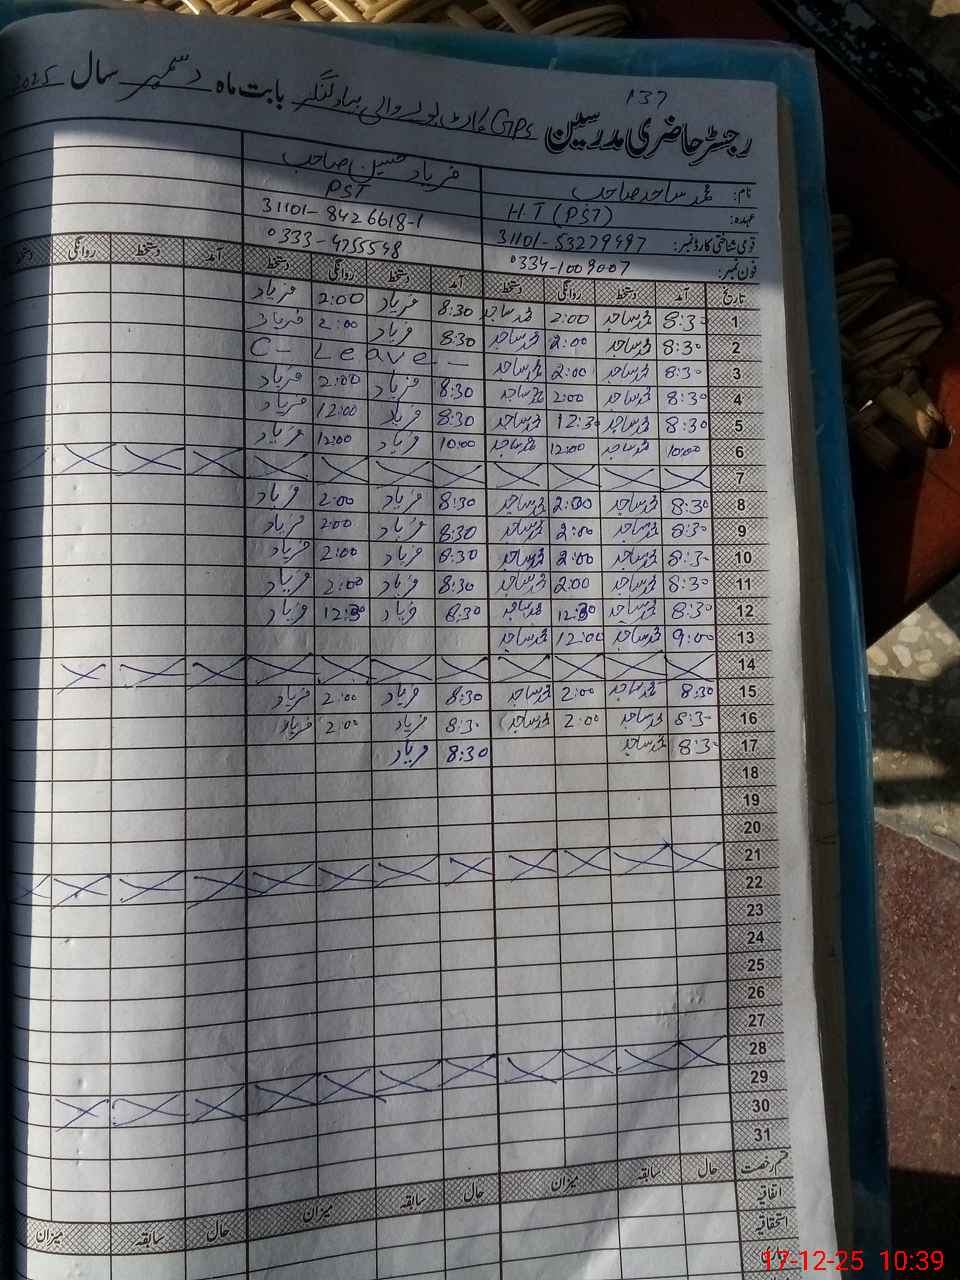 137
رجسٹر حاضری مدرسین GPS بابت ماہ دسمبر سال 2025
نام: محمد ساجد صاحب فریاد حسین صاحب
عہدہ: H.T (PST) PST
قومی شناختی کارڈ نمبر: 31101-53279497 31101-8426618-1
فون نمبر: 0334-1009007 0333-4755548
تاریخ آمد دستخط روانگی دستخط آمد دستخط روانگی دستخط آمد دستخط روانگی دستخط
1 8:30 محمد ساجد 2:00 محمد ساجد 8:30 فریاد 2:00 فریاد
2 8:30 محمد ساجد 2:00 محمد ساجد 8:30 فریاد 2:00 فریاد
3 8:30 محمد ساجد 2:00 محمد ساجد C- Leave -
4 8:30 محمد ساجد 2:00 محمد ساجد 8:30 فریاد 2:00 فریاد
5 8:30 محمد ساجد 12:30 محمد ساجد 8:30 فریاد 12:00 فریاد
6 10:00 محمد ساجد 12:00 محمد ساجد 10:00 فریاد 12:00 فریاد
7
8 8:30 محمد ساجد 2:00 محمد ساجد 8:30 فریاد 2:00 فریاد
9 8:30 محمد ساجد 2:00 محمد ساجد 8:30 فریاد 2:00 فریاد
10 8:30 محمد ساجد 2:00 محمد ساجد 8:30 فریاد 2:00 فریاد
11 8:30 محمد ساجد 2:00 محمد ساجد 8:30 فریاد 2:00 فریاد
12 8:30 محمد ساجد 12:30 محمد ساجد 8:30 فریاد 12:30 فریاد
13 9:00 محمد ساجد 12:00 محمد ساجد
14
15 8:30 محمد ساجد 2:00 محمد ساجد 8:30 فریاد 2:00 فریاد
16 8:30 محمد ساجد 2:00 محمد ساجد 8:30 فریاد 2:00 فریاد
17 8:30 محمد ساجد 8:30 فریاد
18
19
20
21
22
23
24
25
26
27
28
29
30
31
قسم رخصت حال سابقہ میزان حال سابقہ میزان حال سابقہ میزان
اتفاقیہ
استحقاقیہ
17-12-25 10:39